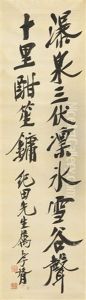 瀑泉三伏凜冰雪谷聲
十里酣笙鏞 純田先生屬 孝胥